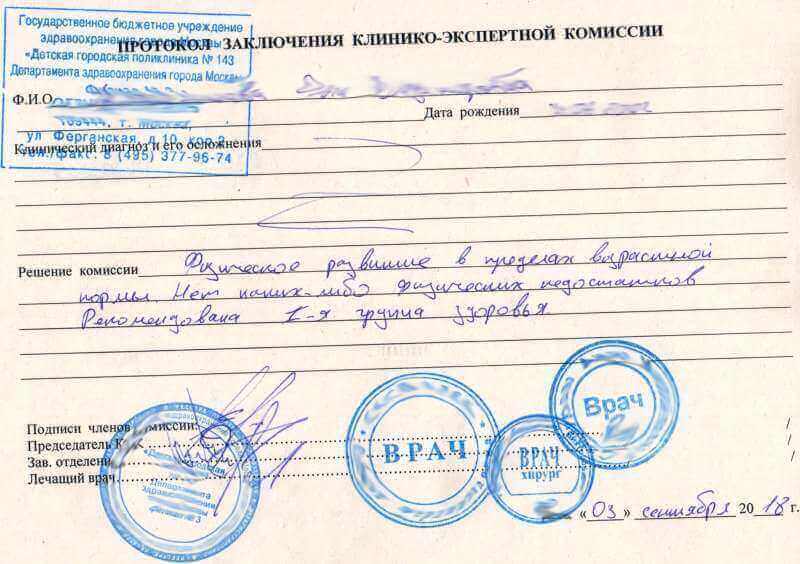 Государственное бюджетное учреждение
здравоохранения города Москвы
«Детская городская поликлиника № 143
Департамента здравоохранения города Москвы
ул Ферганская, д 10, кор 2
тел./факс: 8 (495) 377-96-74
ПРОТОКОЛ ЗАКЛЮЧЕНИЯ КЛИНИКО-ЭКСПЕРТНОЙ КОМИССИИ
Ф.И.О
Дата рождения
Клинический диагноз и его осложнения
Решение комиссии Физическое развитие в пределах возрастной
нормы. Нет каких-либо физических недостатков
Рекомендована I-я группа здоровья.
Подписи членов комиссии:
Председатель К
Зав. отделени
Лечащий врач
Департамента
здравоохранения
ВРАЧ
ВРАЧ
хирург
Врач
«03» сентября 2018 г.